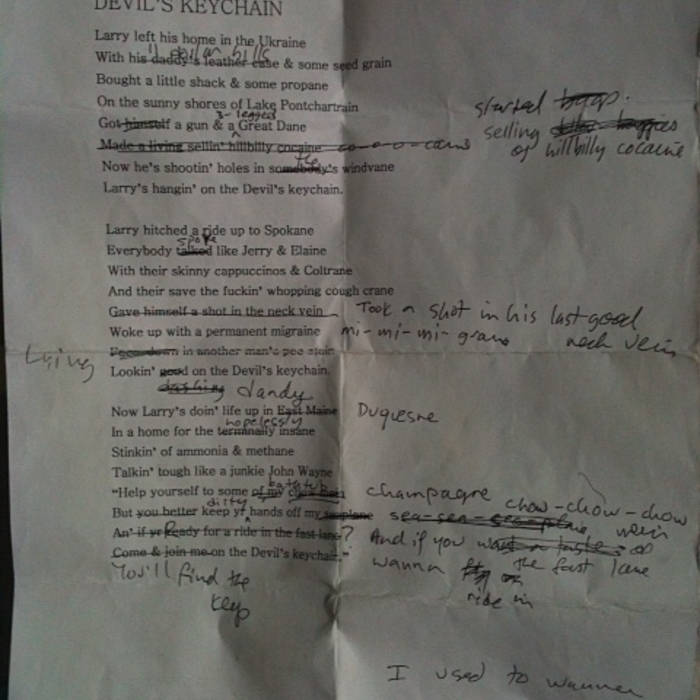 DEVIL'S KEYCHAIN
Larry left his home in the Ukraine
11 dollar bills
With his daddy's leather case & some seed grain
Bought a little shack & some propane
On the sunny shores of Lake Pontchartrain
3-legged
Got himself a gun & a Great Dane
started
Made a living sellin' hillbilly cocaine co-o-o-caine
selling
of hillbilly cocaine
the
Now he's shootin' holes in somebody's windvane
Larry's hangin' on the Devil's keychain.
Larry hitched a ride up to Spokane
spoke
Everybody talked like Jerry & Elaine
With their skinny cappuccinos & Coltrane
And their save the fuckin' whopping cough crane
Gave himself a shot in the neck vein
Took a shot in his last good
neck vein
Woke up with a permanent migraine
mi-mi-mi-graine
Lying
down in another man's pee stain
Lookin' good on the Devil's keychain.
dashing dandy
Now Larry's doin' life up in East Maine
Duquesne
hopelessly
In a home for the terminally insane
Stinkin' of ammonia & methane
Talkin' tough like a junkie John Wayne
bathtub
"Help yourself to some of my
champagne chow-chow-chow
dirty
But you better keep yr hands off my seaplane
An' if yr Ready for a ride in the fast lane?
And if you want a taste of
wanna
ride in
the fast lane
Come & join me on the Devil's keychain."
You'll find the
key
I used to wanna